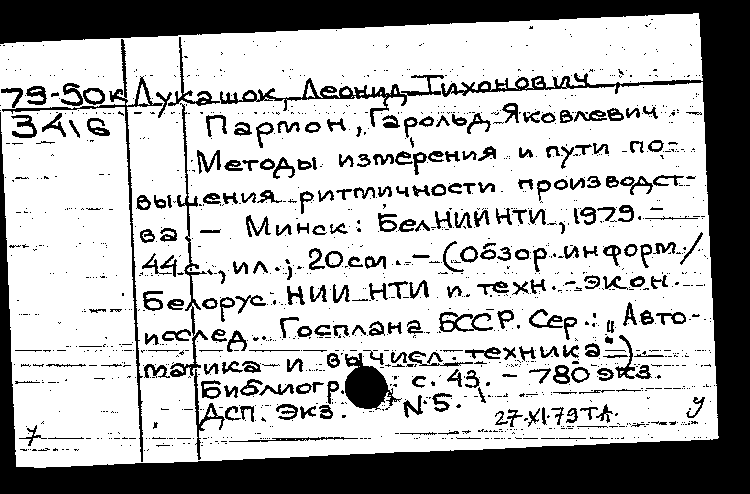 79-50к Лукашок, Леонид Тихонович,
3416 Пармон, Гарольд Яковлевич.
Методы измерения и пути по-
вышения ритмичности производст-
ва. - Минск: БелНИИНТИ, 1979. -
44 с., ил.; 20 см. - (Обзор. информ./
Белорус. НИИ НТИ и техн.-экон.
исслед.. Госплана БССР. Сер.: "Авто-
матика и вычисл. техника")
Библиогр.: с. 43. - 780 экз.
ДСП. Экз. N 5.
27-XI-79 Т.А. У
7